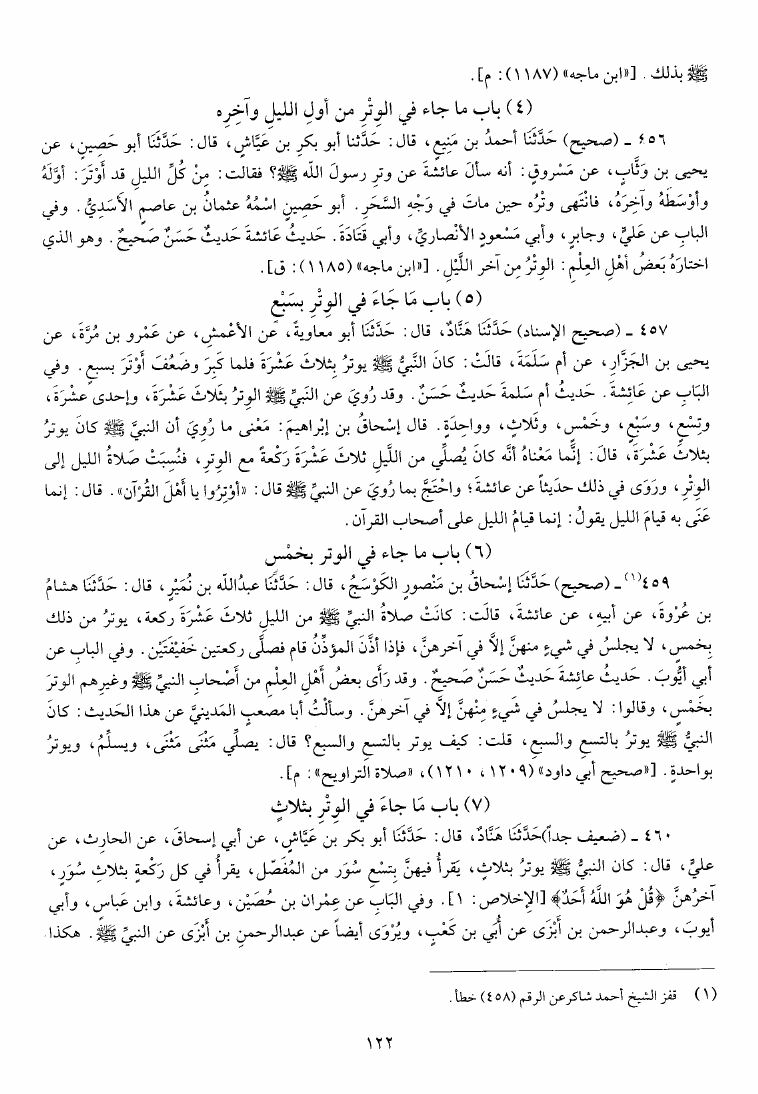 ﷺ بذلك. [«ابن ماجه» (١١٨٧): م].
(٤) باب ما جاء في الوِتْرِ من أولِ الليلِ وآخِرِه
٤٥٦ ـ (صحيح) حَدَّثَنَا أحمدُ بن مَنِيعٍ، قال: حَدَّثنا أبو بكرِ بن عَيَّاشٍ، قال: حَدَّثَنَا أبو حَصِينٍ، عن
يحيى بن وَثَّابٍ، عن مَسْروقٍ: أنه سألَ عائشةَ عن وترِ رسولَ اللّه ﷺ؟ فقالت: مِنْ كُلِّ الليلِ قد أوْتَرَ: أوَّلهُ
وأوْسَطَهُ وآخِرَهُ، فانْتَهى وتْرُه حين ماتَ في وَجْهِ السَّحَرِ. أبو حَصِينٍ اسْمُهُ عثمانُ بن عاصمٍ الأسَديُّ. وفي
البابِ عن عَليٍّ، وجابرٍ، وأبي مَسْعودٍ الأنْصاريِّ، وأبي قَتَادَةَ. حديثُ عَائشةَ حديثٌ حَسَنٌ صَحيحٌ. وهو الذي
اختارَهُ بَعضُ أهْلِ العِلْمِ: الوِتْرُ مِن آخرِ اللَّيْلِ. [«ابن ماجه» (١١٨٥): ق].
(٥) باب مَا جَاءَ في الوِتْرِ بسَبْعٍ
٤٥٧ ـ (صحيح الإسناد) حَدَّثَنَا هَنَّادٌ، قال: حَدَّثَنَا أبو معاويةَ، عَنِ الأعْمشِ، عن عَمْرو بن مُرَّةَ، عن
يحيى بن الجَزَّارِ، عن أم سَلَمَةَ، قالَتْ: كانَ النَّبيُّ ﷺ يوترُ بثلاثَ عَشْرَةَ فلما كَبِرَ وضَعُفَ أوْتَرَ بسبعٍ. وفي
البَابِ عن عَائِشةَ. حَديثُ أم سَلمةَ حَديثٌ حَسَنٌ. وقد رُويَ عن النبيِّ ﷺ الوِترُ بثَلاثَ عَشْرَةَ، وإحدى عَشْرَةَ،
وتِسْعٍ، وسَبْعٍ، وخَمْسٍ، وثَلاثٍ، وواحِدَةٍ. قال إسْحاقُ بن إبْراهيمَ: مَعْنى ما رُوِيَ أن النبيَّ ﷺ كانَ يوترُ
بثلاثَ عَشْرَةَ، قالَ: إنَّما مَعْناهُ أنَّه كانَ يُصلِّي من اللَّيلِ ثلاثَ عَشْرَةَ رَكْعةً مع الوِترِ، فنُسِبَتْ صَلاةُ الليلِ إلى
الوِتْرِ، ورَوَى في ذلك حدَيثاً عن عائشةَ؛ واحْتَجَّ بما رُويَ عن النبيِّ ﷺ قال: «أوْتِرُوا يا أهْلَ القُرْآنِ». قال: إنما
عَنَى به قيامَ الليل يقولُ: إنما قيامُ الليل على أصحاب القرآن.
(٦) باب ما جاء في الوترِ بخمْسٍ
٤٥٩(١) ـ (صحيح) حَدَّثَنَا إسْحاقُ بن مَنْصورٍ الكَوْسَجُ، قال: حَدَّثَنَا عبدُاللّه بن نُمَيْرٍ، قال: حَدَّثَنَا هشامُ
بن عُرْوةَ، عن أبيهِ، عن عائشةَ، قالَت: كانَتْ صَلاةُ النبيِّ ﷺ من الليلِ ثلاثَ عَشْرَةَ ركعة، يوترُ من ذلك
بِخمسٍ، لا يجلسُ في شيءٍ منهنَّ إلاَّ في آخرهنَّ، فإذا أذَّنَ المؤذِّنُ قام فصلَّى ركعتين خَفيْفَتَيْنِ. وفي البابِ عن
أبي أيُّوبَ. حَديثُ عائِشةَ حَديثٌ حَسَنٌ صَحيحٌ. وقد رَأى بعضُ أهْلِ العِلْمِ من أصْحابِ النبيِّ ﷺ وغيرِهم الوترَ
بخَمْسٍ، وقالوا: لا يجلسُ في شَيءٍ مِنْهنَّ إلاَّ في آخرهنَّ. وسألْتُ أبا مصعبٍ المَدينيَّ عن هذا الحَديث: كانَ
النبيُّ ﷺ يوترُ بالتسعِ والسبعِ، قلت: كيف يوتر بالتسعِ والسبعِ؟ قال: يصلِّي مَثْنَى مَثْنَى، ويسلِّمُ، ويوترُ
بواحدةٍ. [«صحيح أبي داود» (١٢٠٩، ١٢١٠)، «صلاة التراويح»: م].
(٧) باب مَا جَاءَ في الوِتْرِ بثلاثٍ
٤٦٠ ـ (ضعيف جداً)حَدَّثَنَا هَنَّادٌ، قال: حَدَّثَنَا أبو بكر بن عَيَّاشٍ، عن أبي إسحاقَ، عن الحارِث، عن
عليٍّ، قال: كان النبيُّ ﷺ يوترُ بثلاثٍ، يَقرأُ فيهنَّ بِتسْعِ سُوَر من المُفَصَّل، يقرأُ في كل رَكْعةٍ بثلاثِ سُوَرٍ،
آخرُهنَّ ﴿قُلْ هُوَ اللَّهُ أَحَدٌ﴾ [الإخلاص: ١]. وفي البَابِ عن عِمْران بن حُصَيْن، وعائشةَ، وابن عَباسٍ، وأبي
أيوبَ، وعبدالرحمن بن أبْزَى عن أُبَي بن كَعْبٍ، ويُرْوَى أيضاً عن عبدالرحمنِ بن أبْزَى عن النبيِّ ﷺ. هكذا
(١) قفز الشيخ أحمد شاكرعن الرقم (٤٥٨) خطأ.
١٢٢